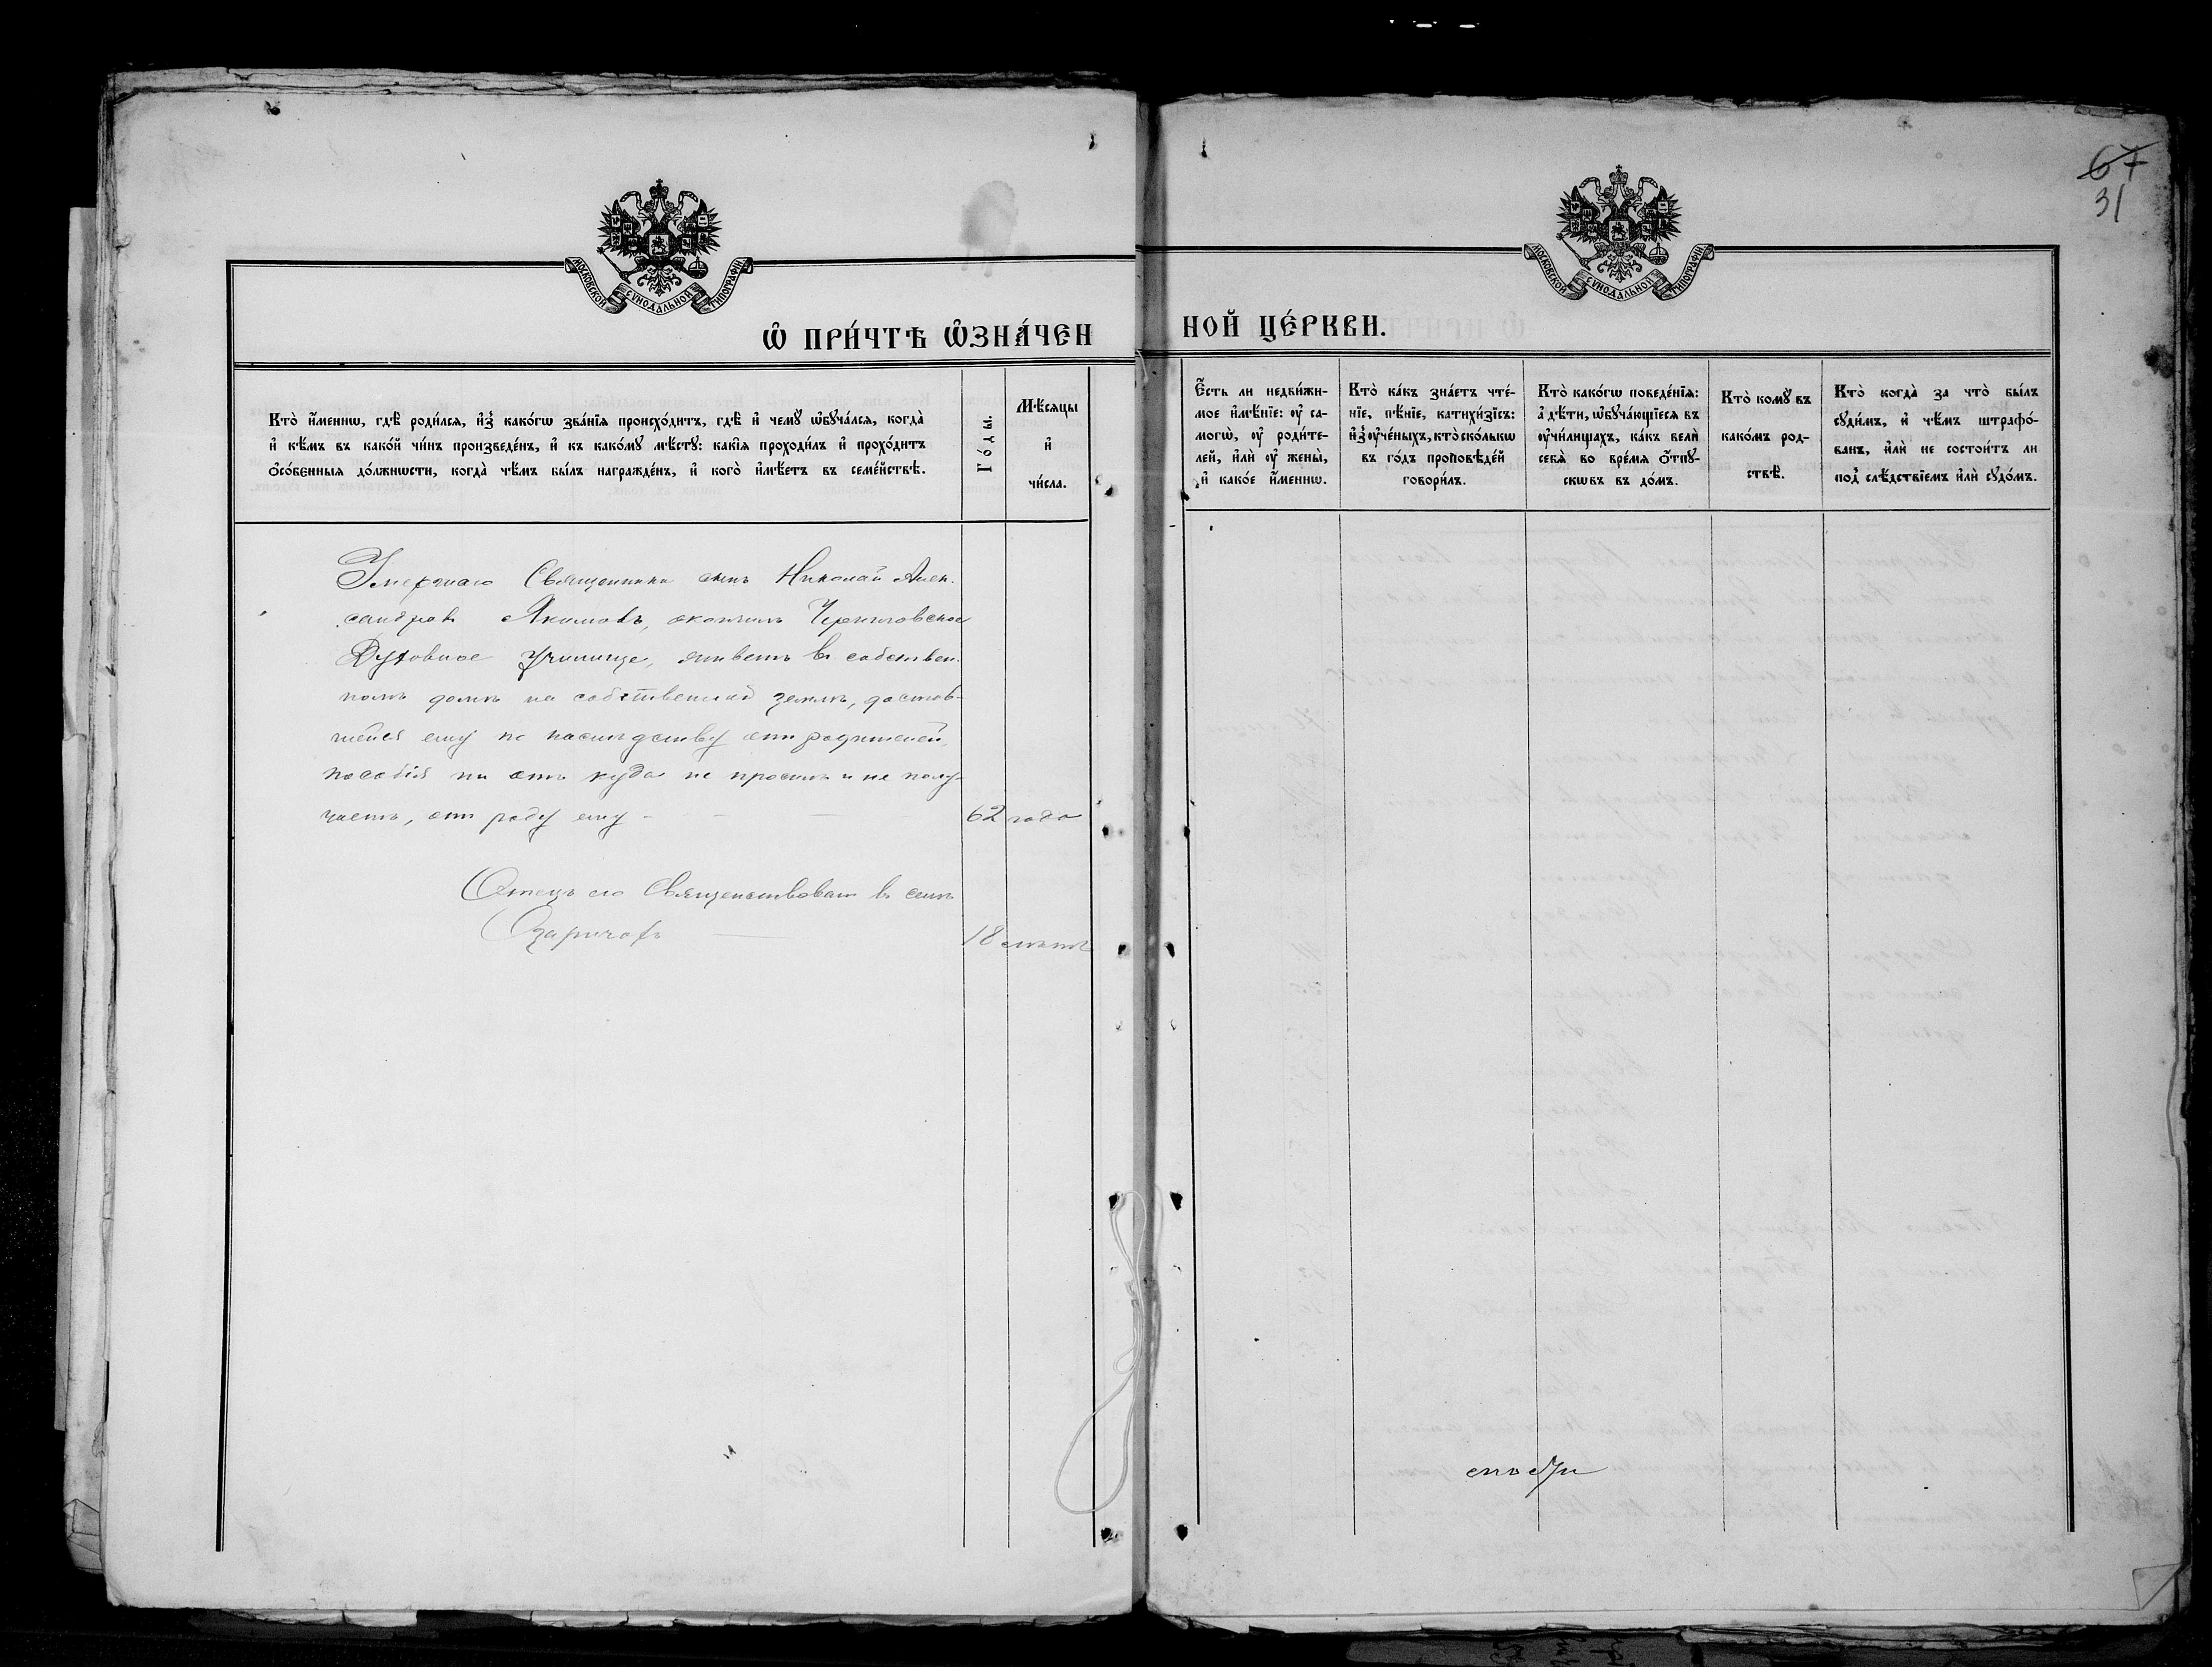 67
31
МОСКОВСКОЙ СѴНОДАЛЬНОЙ ТИПОГРАФІИ
МОСКОВСКОЙ СѴНОДАЛЬНОЙ ТИПОГРАФІИ
Ѡ҆ ПРИ́ЧТѢ Ѡ҆ЗНА́ЧЕН
НОЙ ЦЕ́РКВИ.
Кто̀ и҆́меннѡ, гдѣ̀ роди́лся, и҆з̾ како́гѡ зва́нїѧ происхо́дитъ, гдѣ̀ и҆ чемꙋ̀ ѡ҆бꙋча́лсѧ, когда̀
и҆ кѣ́мъ въ како́й чи́нъ произведе́нъ, и҆ къ како́мꙋ мѣ́стꙋ: какі̑ѧ проходи́лъ и҆ прохо́дитъ
ѻ҆со́бенныѧ до́лжнѡсти, когда̀ чѣ́мъ бы́лъ награжде́нъ, и҆ кого̀ и҆мѣ́етъ въ семе́йствѣ.
Го́ды.
Мѣ́сѧцы
и҆
чи́сла.
Е҆́сть ли недви́жи-
мое и҆мѣ́нїе: ᲂу҆ са-
могѡ̀, ᲂу҆ роди́те-
лей, и҆лѝ ᲂу҆ жены̀,
и҆ како́е и҆́меннѡ.
Кто̀ ка́къ зна́етъ чте́-
нїе, пѣ́нїе, катихи́зїсъ:
и҆з̾ ᲂу҆че́ныхъ, кто̀ ско́лькѡ
въ го́дъ проповѣ́дей
говори́лъ.
Кто̀ како́гѡ поведе́нїѧ:
а҆ дѣ́ти, ѡ҆бꙋча́ющїесѧ въ
ᲂу҆чи́лищахъ, ка́къ велѝ
себѧ̀ во вре́мѧ ѻ҆́тпꙋ-
скѡвъ въ до́мъ.
Кто̀ комꙋ̀ въ
како́мъ род-
ствѣ̀.
Кто̀ когда̀ за что̀ бы́лъ
сꙋди́мъ, и҆ чѣ́мъ штрафо́-
ванъ, и҆лѝ не состои́тъ ли
под̾ слѣ́дствїемъ и҆лѝ сꙋдо́мъ.
Умершаго Священника сынъ Николай Алек-
сандровъ Якимовъ, окончилъ Черниговское
Духовное Училище, живетъ въ собствен-
номъ домѣ на собственной землѣ, достав-
шейся ему по наслѣдству отъ родителей,
пособія ни отъ куда не проситъ и не полу-
чаетъ, отъ роду ему - - —
62 года
Отецъ его Священствовалъ въ селѣ
Озаричахъ —
18 лѣтъ